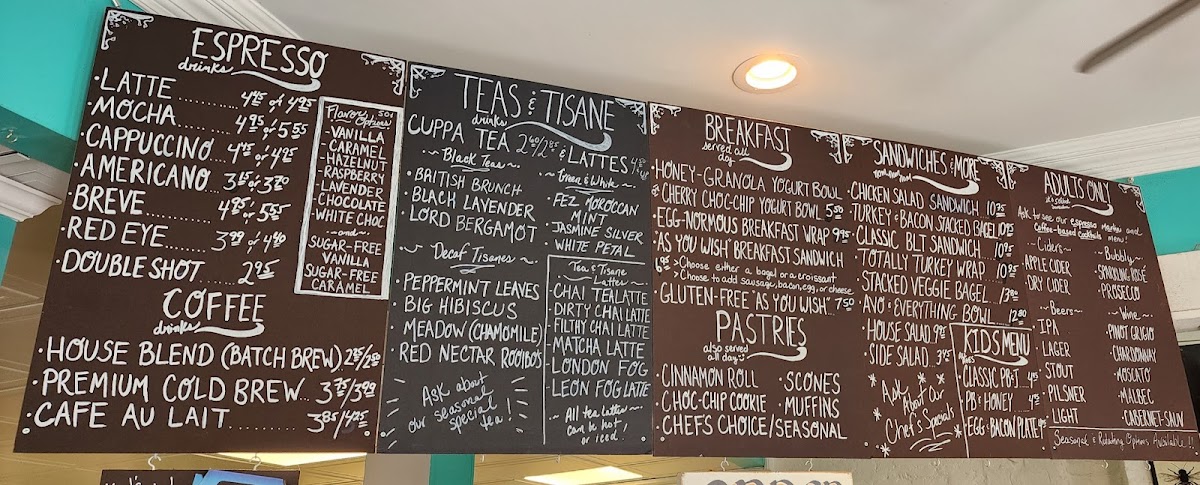 ESPRESSO
drinks
·LATTE............4.45 or 4.95
·MOCHA............4.95 or 5.55
·CAPPUCCINO....4.45 or 4.95
·AMERICANO....3.15 or 3.70
·BREVE............4.95 or 5.55
·RED EYE..........3.99 or 4.80
·DOUBLE SHOT.....2.95
Flavor 50¢
Options
-VANILLA
-CARAMEL
-HAZELNUT
-RASPBERRY
-LAVENDER
-CHOCOLATE
-WHITE CHOC
-and-
SUGAR-FREE
VANILLA
SUGAR-FREE
CARAMEL
COFFEE
drinks
·HOUSE BLEND (BATCH BREW)
·PREMIUM COLD BREW....3.75/3.99
·CAFE AU LAIT
TEAS & TISANE
drinks
CUPPA TEA & LATTES
~Black Teas~
·BRITISH BRUNCH
·BLACK LAVENDER
·LORD BERGAMOT
~Decaf Tisanes~
·PEPPERMINT LEAVES
·BIG HIBISCUS
·MEADOW (CHAMOMILE)
·RED NECTAR ROOIBOS
Ask about
our seasonal
special
tea!
~Green & White~
·FEZ MOROCCAN
MINT
·JASMINE SILVER
·WHITE PETAL
Tea & Tisane
~Lattes~
·CHAI TEA LATTE
·DIRTY CHAI LATTE
·FILTHY CHAI LATTE
·MATCHA LATTE
·LONDON FOG
·LEON FOG LATTE
~All tea lattes~
can be hot
or iced!
BREAKFAST
served all
day
·HONEY-GRANOLA YOGURT BOWL
·CHERRY CHOC-CHIP YOGURT BOWL 5.50
·EGG-NORMOUS BREAKFAST WRAP 9.95
·"AS YOU WISH" BREAKFAST SANDWICH
6.95 >Choose either a bagel or a croissant
>Choose to add sausage, bacon, egg, or cheese
·GLUTEN-FREE "AS YOU WISH"... 7.50
PASTRIES
also served
all day
·CINNAMON ROLL
·CHOC-CHIP COOKIE
·SCONES
·MUFFINS
·CHEFS CHOICE/SEASONAL
SANDWICHES & MORE
nom nom nom
·CHICKEN SALAD SANDWICH 10.95
·TURKEY & BACON STACKED BAGEL 10.95
·CLASSIC BLT SANDWICH....10.95
·TOTALLY TURKEY WRAP 10.95
·STACKED VEGGIE BAGEL 13.90
·AVO & EVERYTHING BOWL 12.80
·HOUSE SALAD
·SIDE SALAD 3.95
Ask
About Our
Chef's Specials
KIDS MENU
CLASSIC PB·J
PB & HONEY
EGG & BACON PLATE
ADULTS ONLY
Ask to see our espresso martini and
coffee-based cocktails menu!
~Ciders~
·APPLE CIDER
·DRY CIDER
~Beers~
·IPA
·LAGER
·STOUT
·PILSNER
·LIGHT
~Bubbly~
·SPARKLING ROSÉ
·PROSECCO
~Wine~
·PINOT GRIGIO
·CHARDONNAY
·MOSCATO
·MALBEC
·CABERNET-SAUV
Seasonal & Rotating Options Available!!